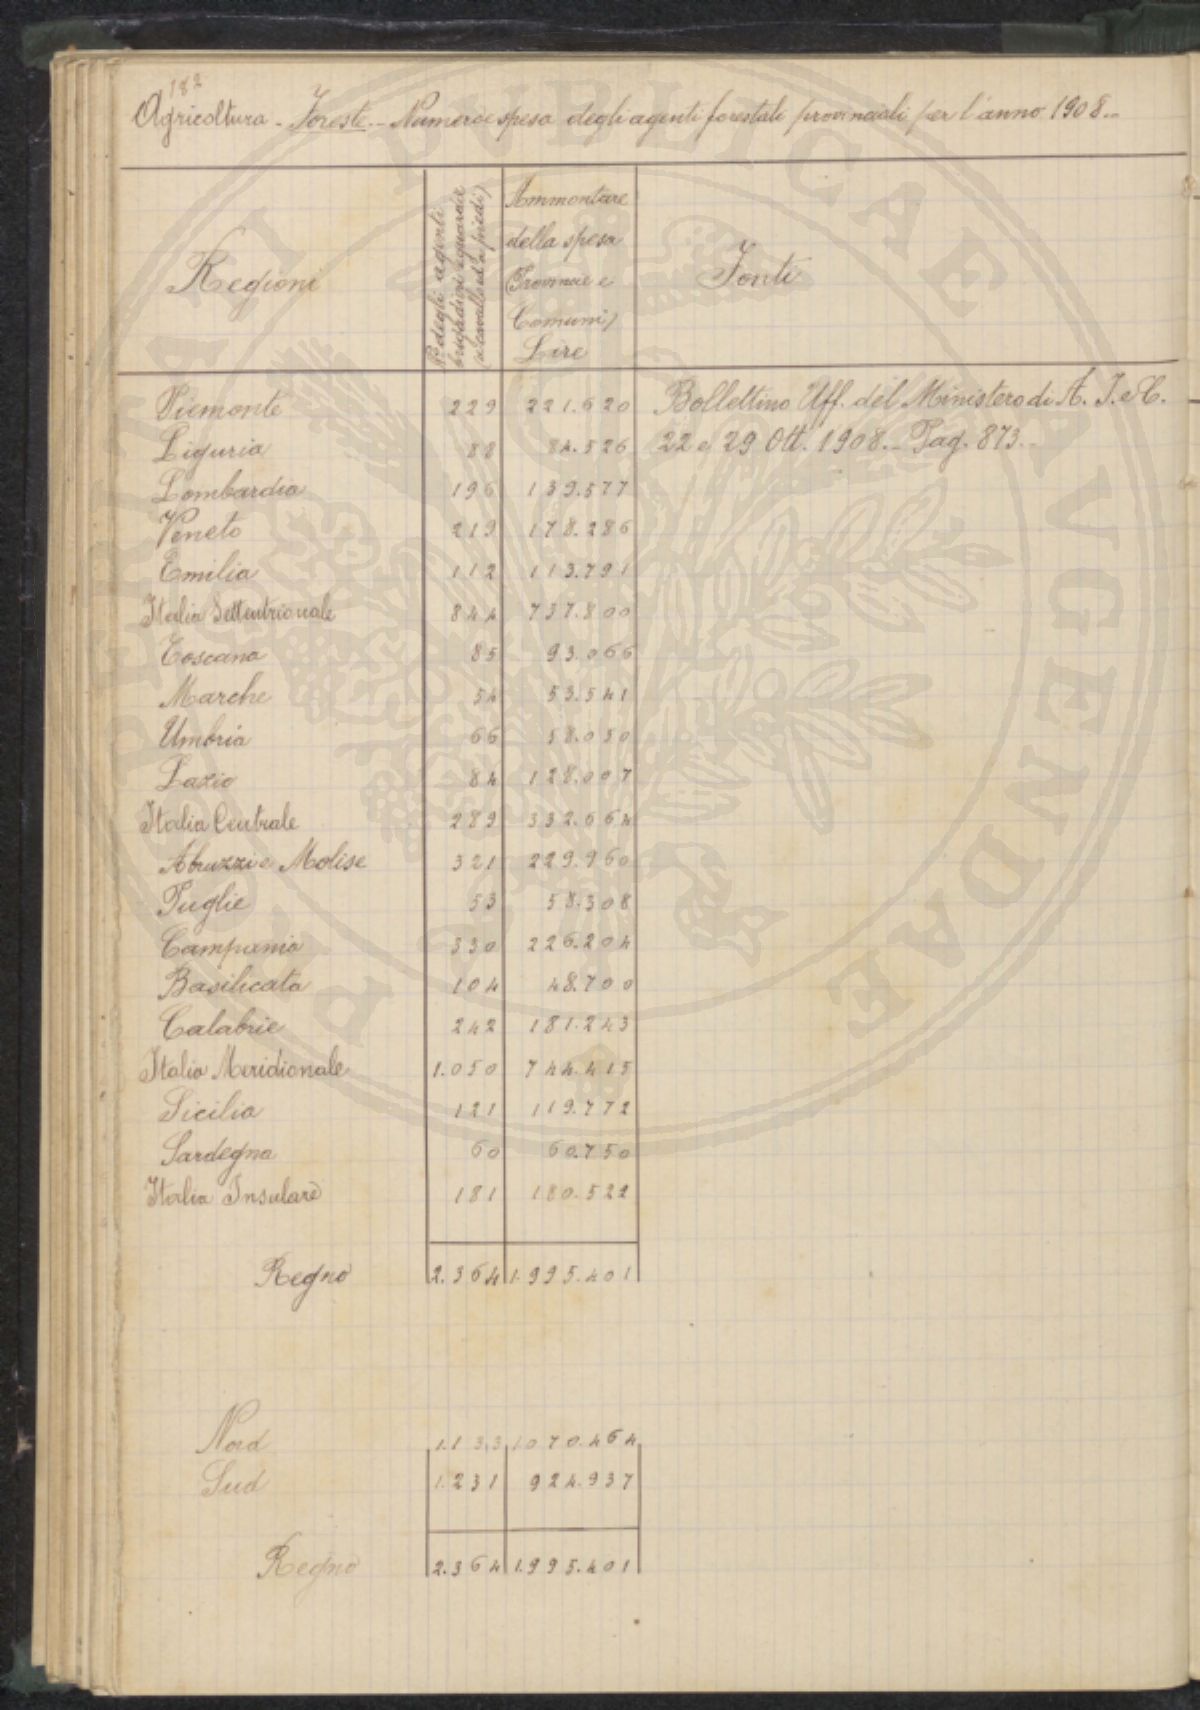 182
Agricoltura - Foreste - Numero e spesa degli agenti forestali provinciali per l'anno 1908..
Regioni
N. degli agenti
brigadieri e guardie
(a cavallo ed a piedi)
Ammontare
della spesa
(Provincie e
Comuni)
Lire
Fonti
Piemonte 229 221.620 Bollettino Uff. del Ministero di A. I. e C.
Liguria 88 84.526 22 e 29 Ott. 1908.. Pag. 873..
Lombardia 196 139.577
Veneto 219 178.286
Emilia 112 113.791
Italia Settentrionale 844 737.800
Toscana 85 93.066
Marche 54 53.541
Umbria 66 58.050
Lazio 84 128.007
Italia Centrale 289 332.664
Abruzzi e Molise 321 229.960
Puglie 53 58.308
Campania 330 226.204
Basilicata 104 48.700
Calabrie 242 181.243
Italia Meridionale 1.050 744.415
Sicilia 121 119.772
Sardegna 60 60.750
Italia Insulare 181 180.522
Regno 2.364 1.995.401
Nord 1.133 1.070.464
Sud 1.231 924.937
Regno 2.364 1.995.401
PUBLICAE AVGENDAE